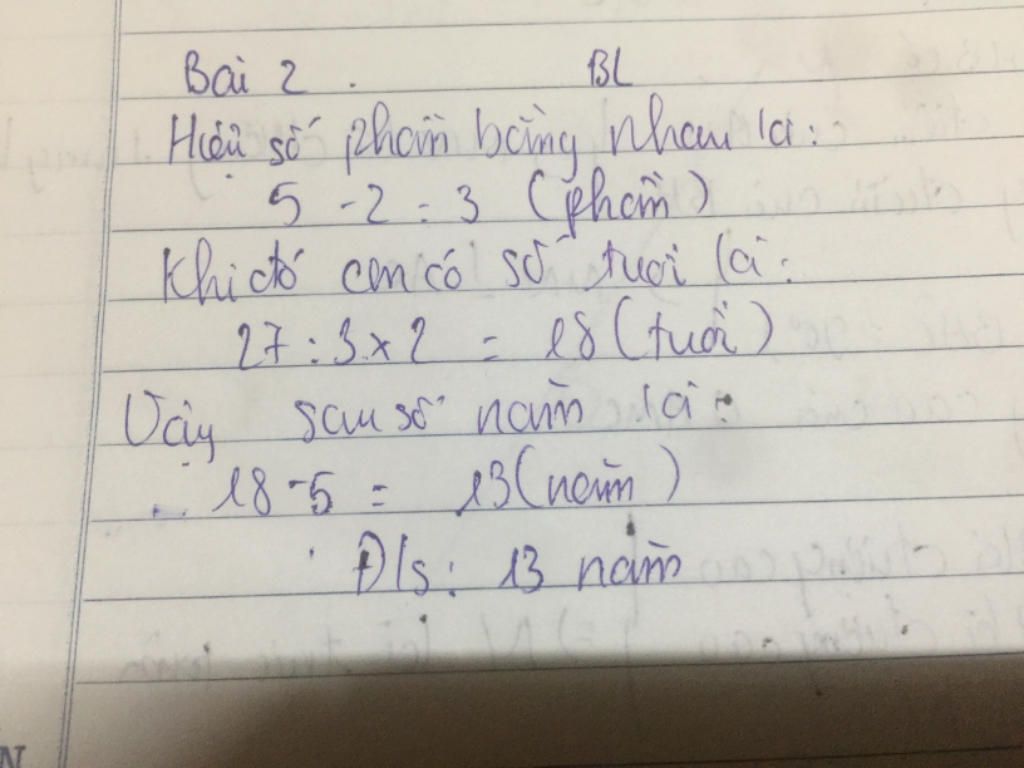 Bài 2. BL
Hiệu số phần bằng nhau là:
5 - 2 = 3 (phần)
Khi đó con có số tuổi là:
27 : 3 x 2 = 18 (tuổi)
Vậy sau số năm là:
18 - 5 = 13 (năm)
Đ/s: 13 năm
N